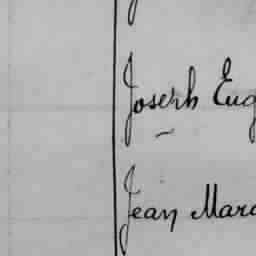 Joseph Eug
Jean Marc